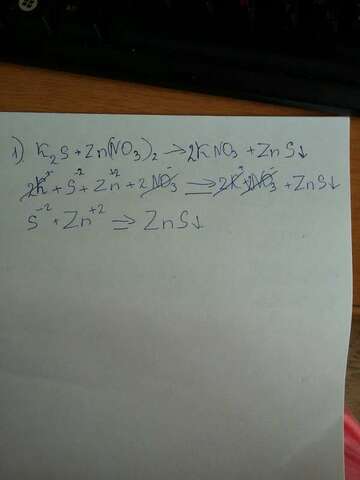 1) K₂S + Zn(NO₃)₂ → 2KNO₃ + ZnS↓
2K⁺ + S⁻² + Zn⁺² + 2NO₃⁻ ⇒ 2K⁺ + 2NO₃⁻ + ZnS↓
S⁻² + Zn⁺² ⇒ ZnS↓